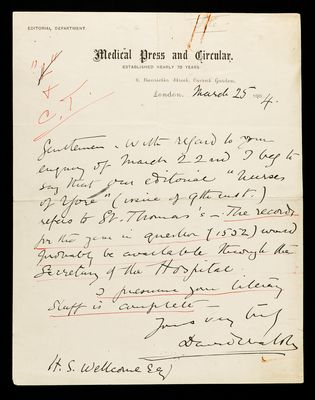 EDITORIAL DEPARTMENT.
Medical Press and Circular.
ESTABLISHED NEARLY 70 YEARS.
8, Henrietta Street, Covent Garden,
London, March 25 1904.
Gentlemen - With regard to your
enquiry of March 22nd I beg to
say that our editorial "Nurses
of Yore" (issue of 9th inst.)
refers to St. Thomas's - The records
for the year in question (1552) would
probably be available through the
Secretary of the Hospital.
I presume your literary
staff is complete -
Yours very truly
David Walsh
H. S. Wellcome Esq